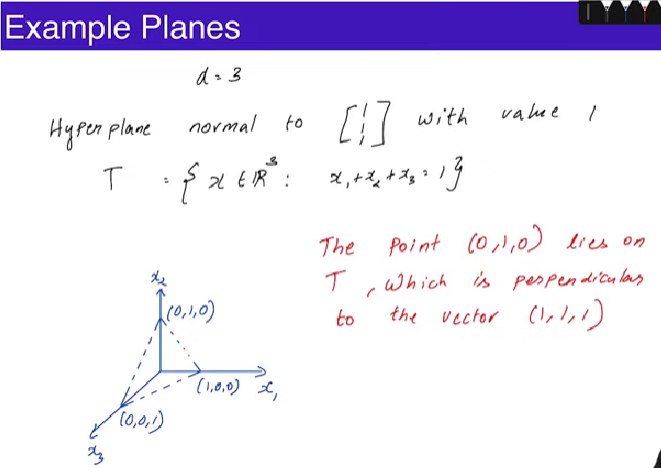 Example Planes
d = 3
Hyperplane normal to [1 1 1] with value 1
T = { x ∈ ℝ³ : x₁ + x₂ + x₃ = 1 }
The Point (0,1,0) lies on
T, which is perpendicular
to the vector (1,1,1)
x₂
(0,1,0)
(1,0,0) x₁
(0,0,1)
x₃